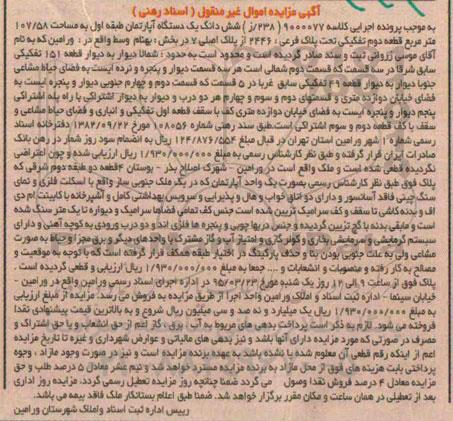 آگهی مزایده اموال غیر منقول ( اسناد رهنی )
به موجب پرونده اجرایی کلاسه ۹۰۰۰۰۷۷ ( ۲۳۸/ز ) شش دانگ یک دستگاه آپارتمان طبقه اول به مساحت ۱۰۷/۵۸
متر مربع قطعه دوم تفکیکی تحت پلاک فرعی : ۲۴۴۶ از پلاک اصلی ۷ در بخش : بهنام وسط واقع در : ورامین که به نام
آقای موسی زروانی ثبت و سند صادر گردیده است و محدود است به حدود : شمالا دیوار به دیوار قطعه ۱۵۱ تفکیکی
سابق شرقا در سه قسمت که قسمت دوم شمالی است هر سه قسمت دیوار و پنجره و نرده ایست به فضای حیاط مشاعی
جنوبا دیوار به دیوار قطعه ۴۹ تفکیکی سابق غربا در ۵ قسمت که قسمت دوم و چهارم جنوبی دیوار و پنجره ایست به
فضای خیابان دوازده متری و قسمتهای دوم و سوم و چهارم هر دو درب و دیوار به دیوار اشتراکی با راه پله اشتراکی
پنجم دیوار و پنجره ایست به فضای خیابان دوازده متری کف با سقف قطعه اول تفکیکی و انباری و فضای حیاط مشاعی و
سقف با کف قطعه دوم و سوم اشتراکی است.طبق سند رهنی شماره ۱۰۸۰۵۶ مورخ ۱۳۸۲/۰۹/۲۲ دفترخانه اسناد
رسمی شماره ۱ شهر ورامین استان تهران در قبال مبلغ ۱۲۴/۸۷۶/۵۵۴ ریال به انضمام سود روز شمار در رهن بانک
صادرات ایران قرار گرفته و طبق نظر کارشناس رسمی به مبلغ ۱/۹۳۰/۰۰۰/۰۰۰ ریال ارزیابی شده و چون اعتراضی
نگردیده قطعی شده است و ملک واقع است در ورامین – شهرک اصلاح بذر – بوستان ۴قطعه دو طبقه دوم شرقی که
پلاک فوق طبق نظر کارشناس رسمی بصورت یک واحد آپارتمان که در یک ملک جنوبی ساز واقع با اسکلت فلزی و نمای
سنگ چینی فاقد آسانسور و دارای دو اتاق خواب و هال و پذیرایی و سرویس بهداشتی کامل و آشپزخانه با کابینت ام دی
اف و بدنه کاشی تا سقف و کف سرامیک تزیین شده است جنس کف تمامی فضاها سرامیک و دیواره تا یک متر سنگ شده
است و مابقی بدنه با گچ تزیین گردیده و جنس دربها چوبی و پنجره ها فلزی اند و دو درب ورودی به کوچه آهنی و دارای
سیستم گرمایشی و سرمایشی بخاری و کولر گازی و امتیاز آب و گاز مشترک با واحدهای دیگر و برق مجزا و حیاط به صورت
مشاعی ولی به علت جنوبی بودن بنا و حذف پارکینگ در اختیار طبقه همکف قرار گرفته است که با توجه به موقعیت و
مصالح به کار رفته و منصوبات و انشعابات و .... جمعا به مبلغ ۱/۹۳۰/۰۰۰/۰۰۰ ریال ارزیابی و قطعی گردیده است .
پلاک فوق از ساعت ۹ الی ۱۲ روز یک شنبه مورخ ۹۵/۰۳/۲۳ در اداره اجرای اسناد رسمی ورامین واقع در ورامین -
خیابان سینما – اداره ثبت اسناد و املاک ورامین واحد اجرا از طریق مزایده به فروش می رسد. مزایده از مبلغ ارزیابی
به مبلغ ۱/۹۳۰/۰۰۰/۰۰۰ ریال یک میلیارد و نه صد و سی میلیون ریال شروع و به بالاترین قیمت پیشنهادی نقدا
فروخته می شود. لازم به ذکر است پرداخت بدهی های مربوط به آب ، برق ، گاز اعم از حق انشعاب و یا حق اشتراک و
مصرف در صورتی که مورد مزایده دارای آنها باشد و نیز بدهی های مالیاتی و عوارض شهرداری و غیره تا تاریخ مزایده
اعم از اینکه رقم قطعی آن معلوم شده یا نشده باشد به عهده برنده مزایده است و نیز در صورت وجود مازاد ، وجوه
پرداختی بابت هزینه های فوق از محل مازاد به برنده مزایده مسترد خواهد شد و نیم عشر معادل ۵ درصد طلب و حق
مزایده معادل ۴ درصد فروش نقدا وصول می گردد ضمنا چنانچه روز مزایده تعطیل رسمی گردد، مزایده روز اداری
بعد از تعطیلی در همان ساعت و مکان مقرر برگزار خواهد شد. ضمنا طبق اعلام بستانکار ملک فاقد بیمه می باشد.
رییس اداره ثبت اسناد واملاک شهرستان ورامین